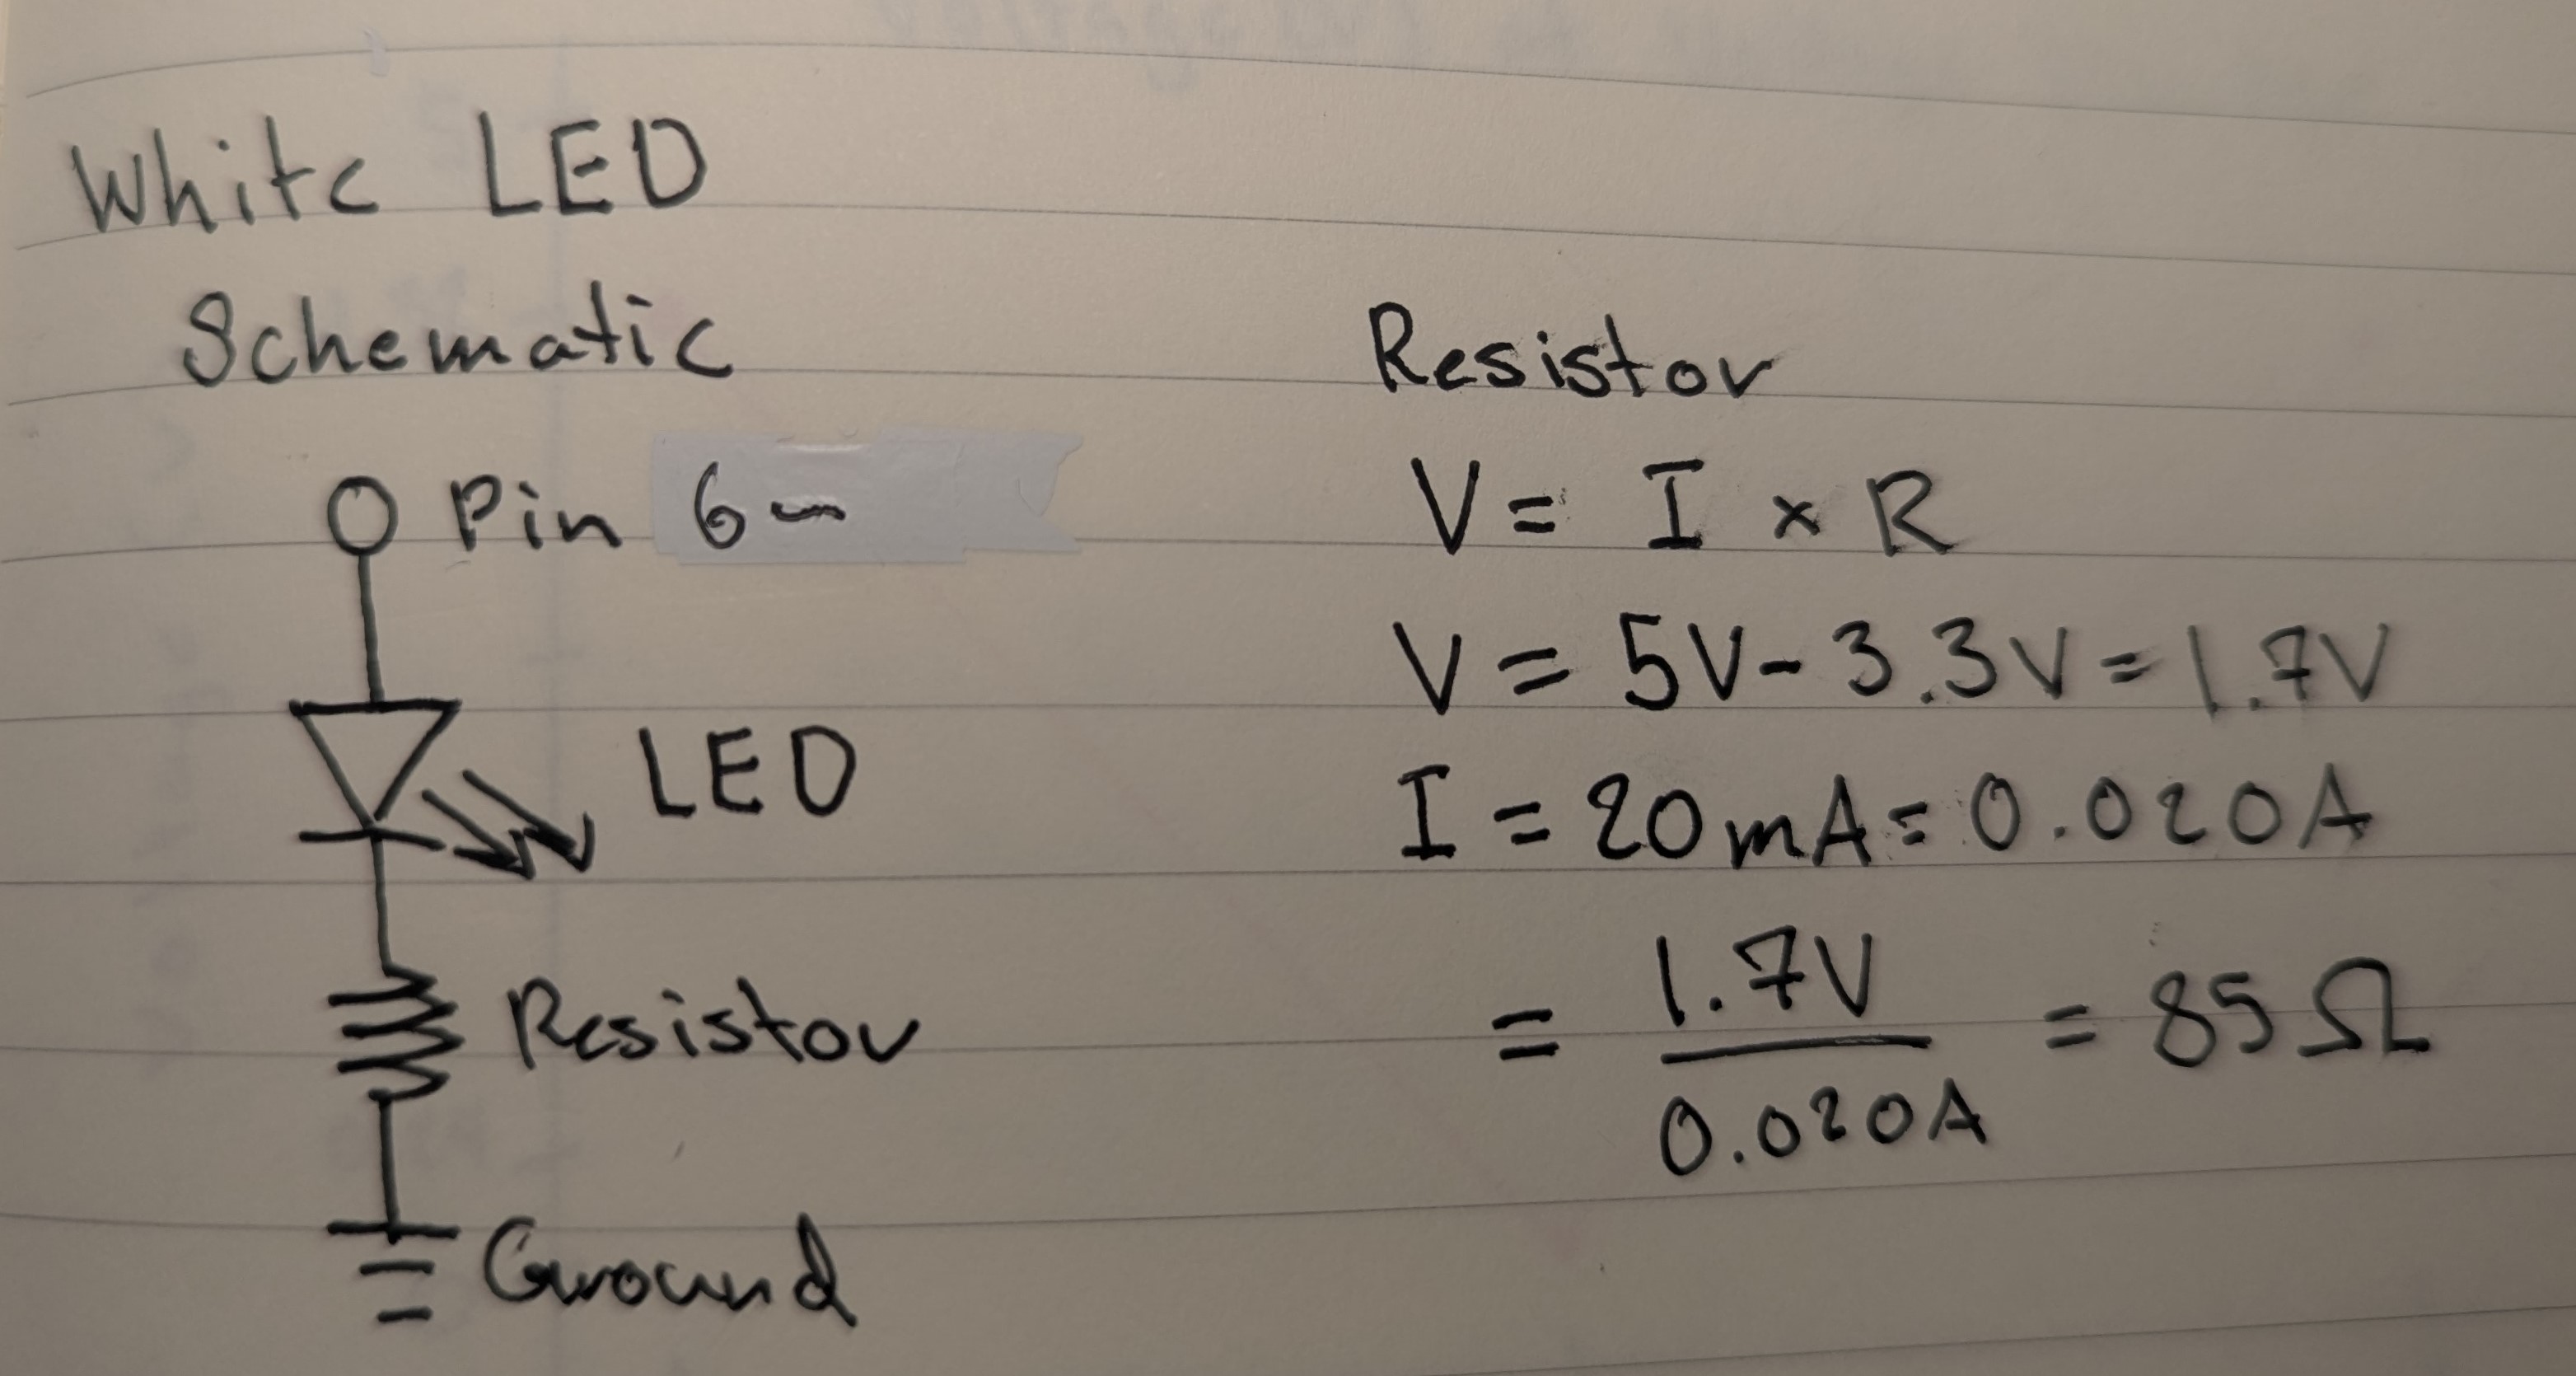 White LED
Schematic
Pin 6~
LED
Resistor
Ground
Resistor
V = I × R
V = 5V - 3.3V = 1.7V
I = 20mA = 0.020A
= 1.7V / 0.020A = 85Ω